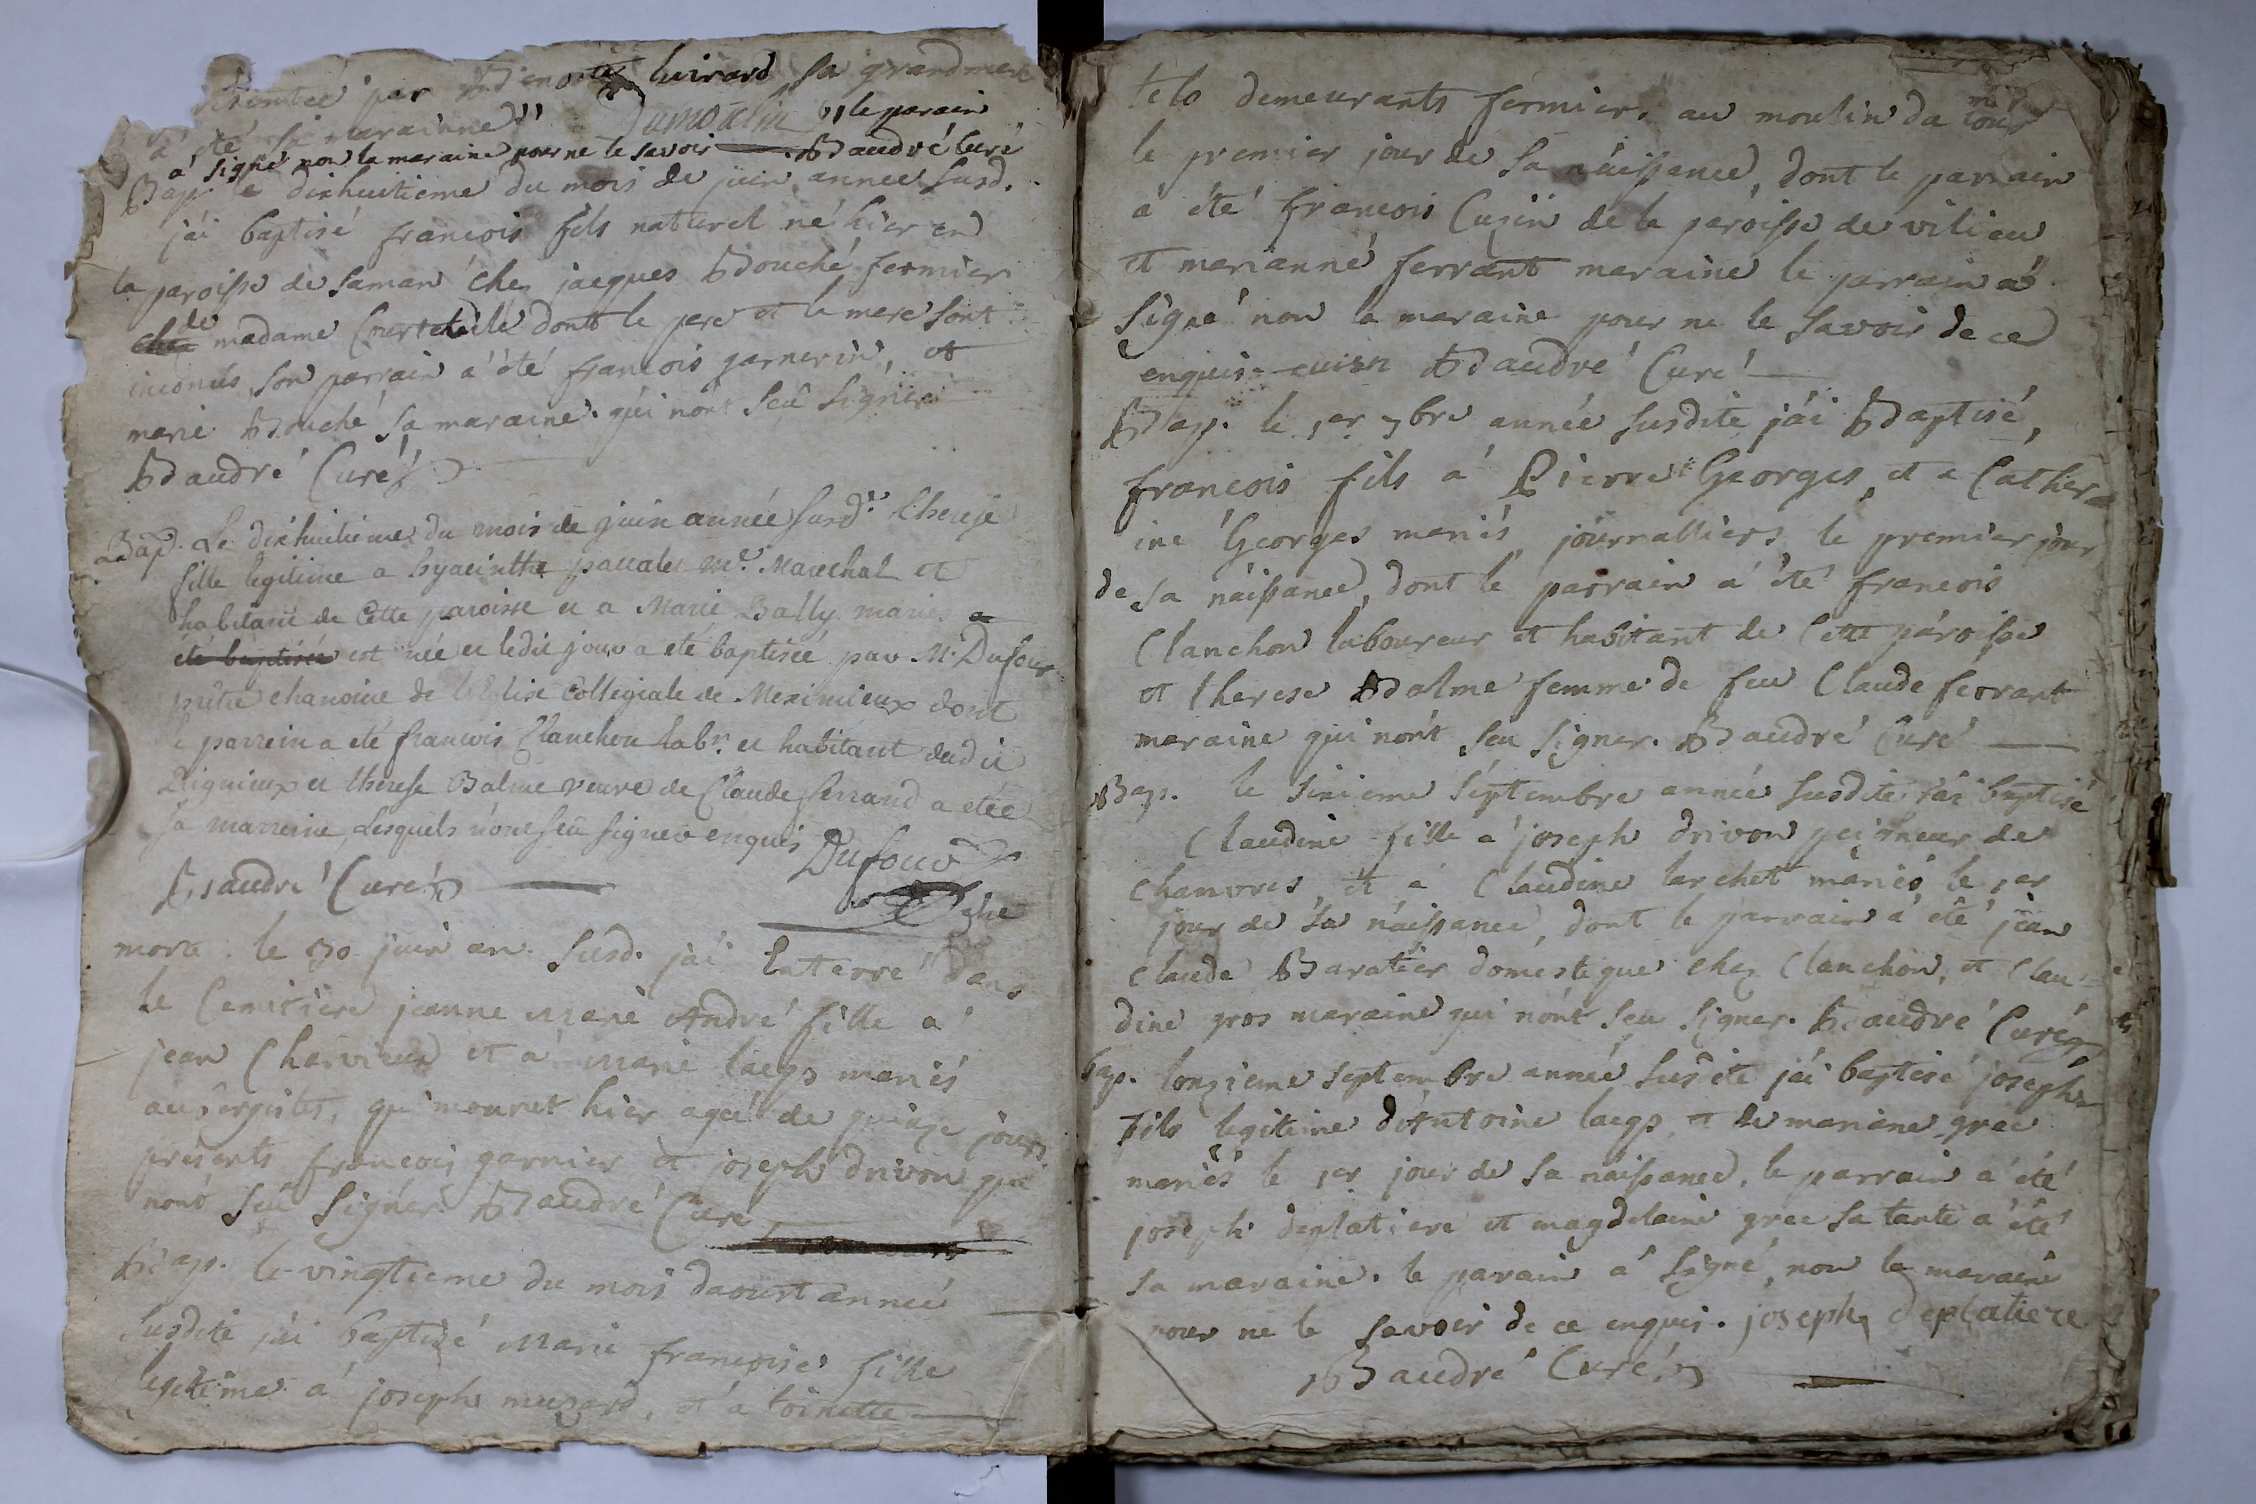 par luirard sa grandmere
a été sa marainne Dumoulin le parain
a signé non la maraine pour ne le savoir Baudré Curé
Bap. le dixhuitieme du mois de juin annee susd.
j'ai baptisé francois fils naturel né hier en
la paroisse de Saman chez jacques Bouché fermier
de madame dont le pere et la mere sont
inconus, son parrain a été francois garnerin, et
marie Bouché sa maraine. qui n'ont seû signer
Baudré Curé
Bap. Le dixhuitieme du mois de juin année susd. therese
fille legitime a hyacinthe pascalet Me. Marechal et
habitant de Cette paroisse et a Marie Bally mariés a
été baptisée est née et ledit jour a eté baptisée par Mr. Dufour
prêtre chanoine de l'Eglise Collegiale de Meximieux dont
le parrein a eté francois Clanchon labr. et habitant dudit
Rignieux et therese Balme veuve de Claude ferrand a etée
sa marreine, Lesquels n'ont seû signer enquis Dufour
Baudré Curé
morte. le 30 juin an. susd. j'ai Enterré dans
le Cemitiere jeanne Marie André fille a
jean Charvieux et a marie laegs mariés
qui mouret hier agée de quinze jours
présents francois garnier et joseph drivon qui
n'ont seû signer. Baudré Curé
Bap. le vingtieme du mois daoust année
susdite j'ai baptizé Marie francoise fille
legitime a joseph muzard, et a toinette
telo demeurants fermiers au moulin da
le premier jour de sa naissance, dont le parrain
a été francois Cuzin de la paroisse de vilieu
et marianne ferrant maraine le parrain a
signé non la maraine pour ne le savoir de ce
enquis. cuisn Baudré Curé
Bap. le 1er 7bre année susdite j'ai Baptisé,
francois fils a Pierre Georges, et a Cather=
ine Georges mariés journalliers, le premier jour
de sa naissance, dont le parrain a été francois
Clanchon laboureur et habitant de Cette paroisse
et therese Balme femme de feu Claude ferrant
maraine qui n'ont seu signer. Baudré Curé
Bap. le sixieme septembre année susdite j'ai baptisé
Claudine fille a joseph drivon peigneur de
chanvres, et a Claudine larchet mariés le 1er
jour de sa naissance, dont le parrain a été jean
claude Baratier domestique chez Clanchon, et Clau=
dine gros maraine qui n'ont seu signer. Baudré Curé
bap. lonzieme septembre année susdite j'ai baptisé joseph
fils legitime d'Antoine laegs, et de mariane grae
mariés le 1er jour de sa naissance, le parrain a été
joseph deplatiere et magdelaine grae sa tante a été
sa maraine. le parain a signé, non la maraine
pour ne le savoir de ce enquis. joseph deplatiere
Baudré Curé